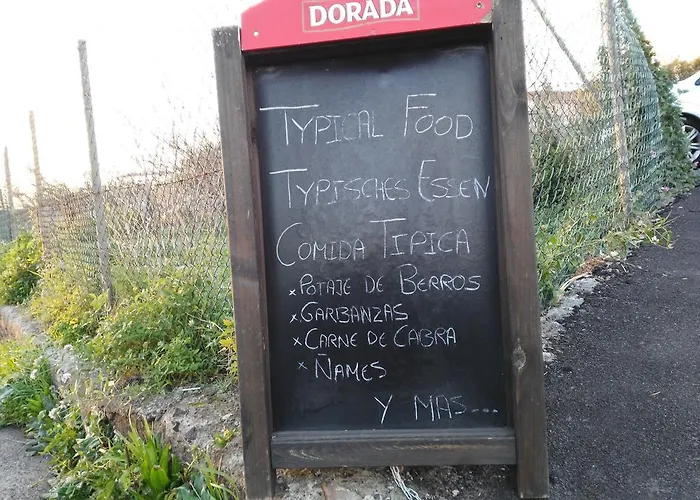 DORADA
TYPICAL FOOD
TYPISCHES ESSEN
COMIDA TIPICA
x POTAJE DE BERROS
x GARBANZAS
x CARNE DE CABRA
x ÑAMES
Y MAS...